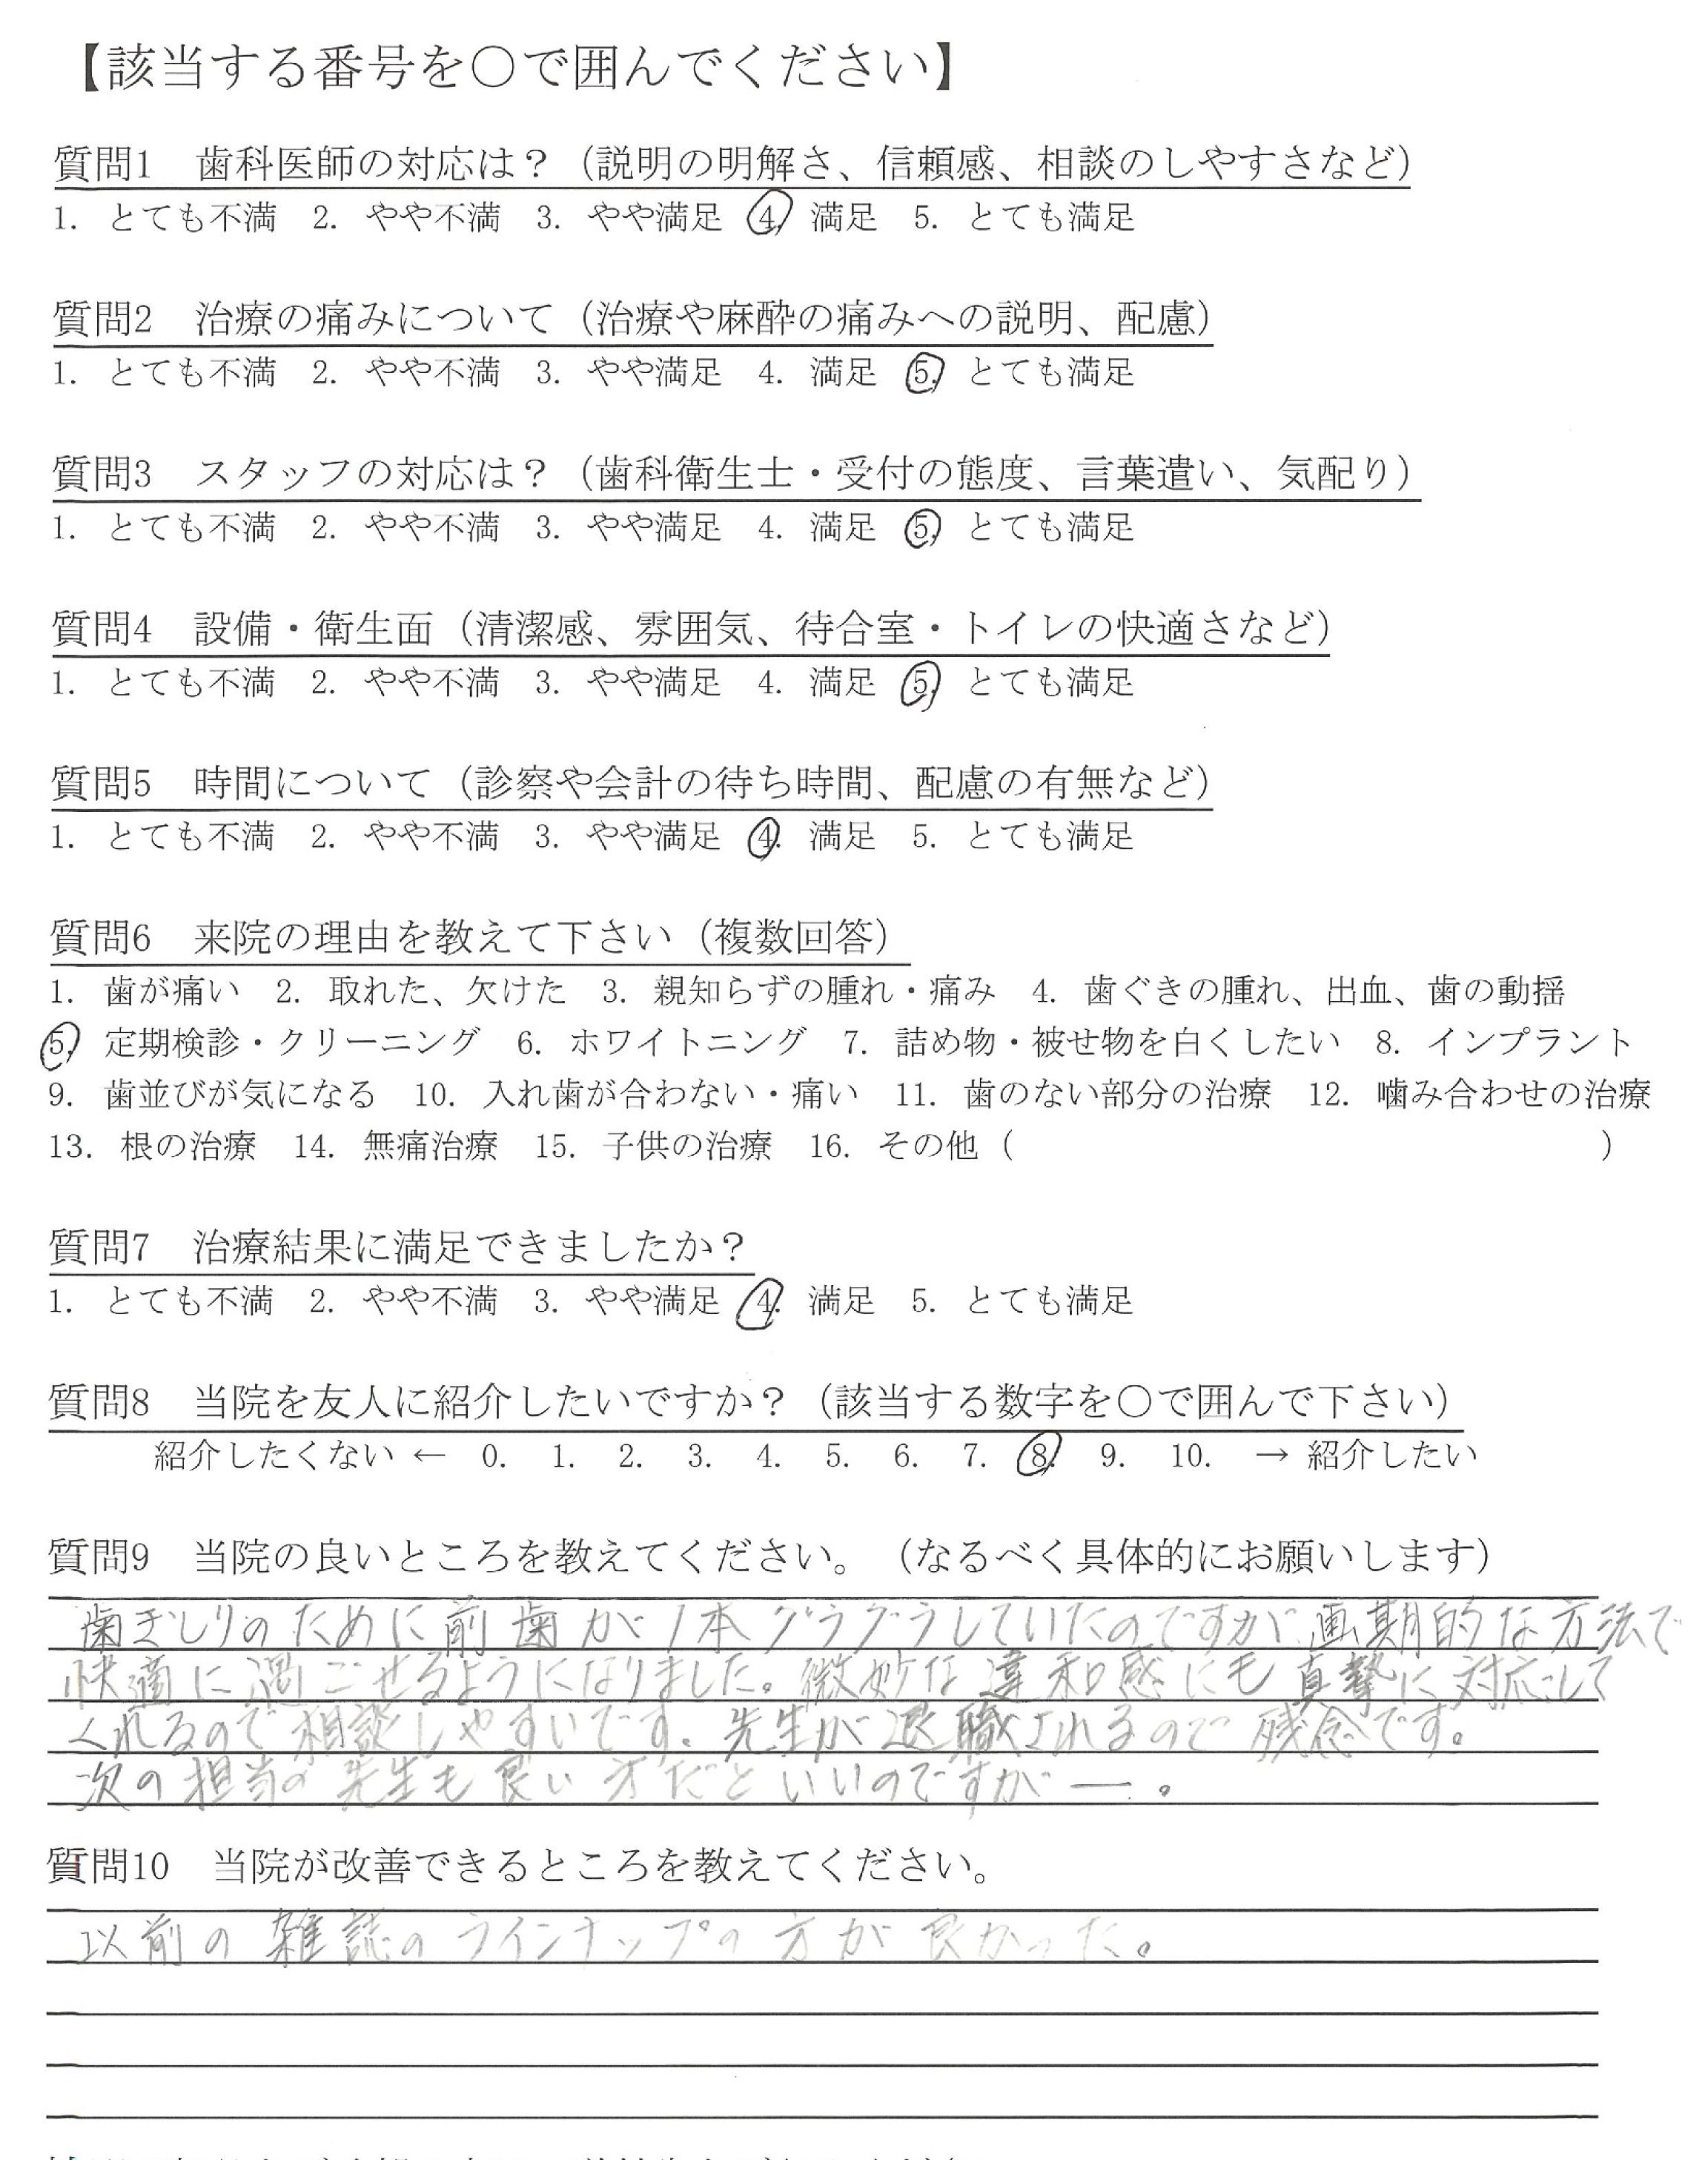 【該当する番号を〇で囲んでください】
質問1　歯科医師の対応は？（説明の明解さ、信頼感、相談のしやすさなど）
1. とても不満　2. やや不満　3. やや満足　4. 満足　5. とても満足
質問2　治療の痛みについて（治療や麻酔の痛みへの説明、配慮）
1. とても不満　2. やや不満　3. やや満足　4. 満足　5. とても満足
質問3　スタッフの対応は？（歯科衛生士・受付の態度、言葉遣い、気配り）
1. とても不満　2. やや不満　3. やや満足　4. 満足　5. とても満足
質問4　設備・衛生面（清潔感、雰囲気、待合室・トイレの快適さなど）
1. とても不満　2. やや不満　3. やや満足　4. 満足　5. とても満足
質問5　時間について（診察や会計の待ち時間、配慮の有無など）
1. とても不満　2. やや不満　3. やや満足　4. 満足　5. とても満足
質問6　来院の理由を教えて下さい（複数回答）
1. 歯が痛い　2. 取れた、欠けた　3. 親知らずの腫れ・痛み　4. 歯ぐきの腫れ、出血、歯の動揺
5. 定期検診・クリーニング　6. ホワイトニング　7. 詰め物・被せ物を白くしたい　8. インプラント
9. 歯並びが気になる　10. 入れ歯が合わない・痛い　11. 歯のない部分の治療　12. 噛み合わせの治療
13. 根の治療　14. 無痛治療　15. 子供の治療　16. その他（　　　　　　　　　　）
質問7　治療結果に満足できましたか？
1. とても不満　2. やや不満　3. やや満足　4. 満足　5. とても満足
質問8　当院を友人に紹介したいですか？（該当する数字を〇で囲んで下さい）
紹介したくない ← 0.　1.　2.　3.　4.　5.　6.　7.　8.　9.　10.　→ 紹介したい
質問9　当院の良いところを教えてください。（なるべく具体的にお願いします）
歯ぎしりのために前歯が1本グラグラしていたのですが、画期的な方法で
快適に過ごせるようになりました。微妙な違和感にも真摯に対応して
くれるので相談しやすいです。先生が退職されるので残念です。
次の担当の先生も良い方だといいのですが―。
質問10　当院が改善できるところを教えてください。
以前の雑誌のラインナップの方が良かった。